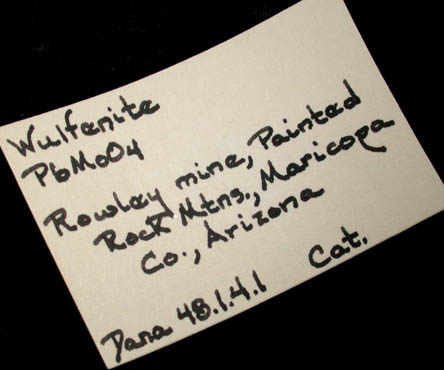 Wulfenite
PbMoO4
Rowley mine, Painted
Rock Mtns., Maricopa
Co., Arizona
Dana 48.1.4.1 Cat.